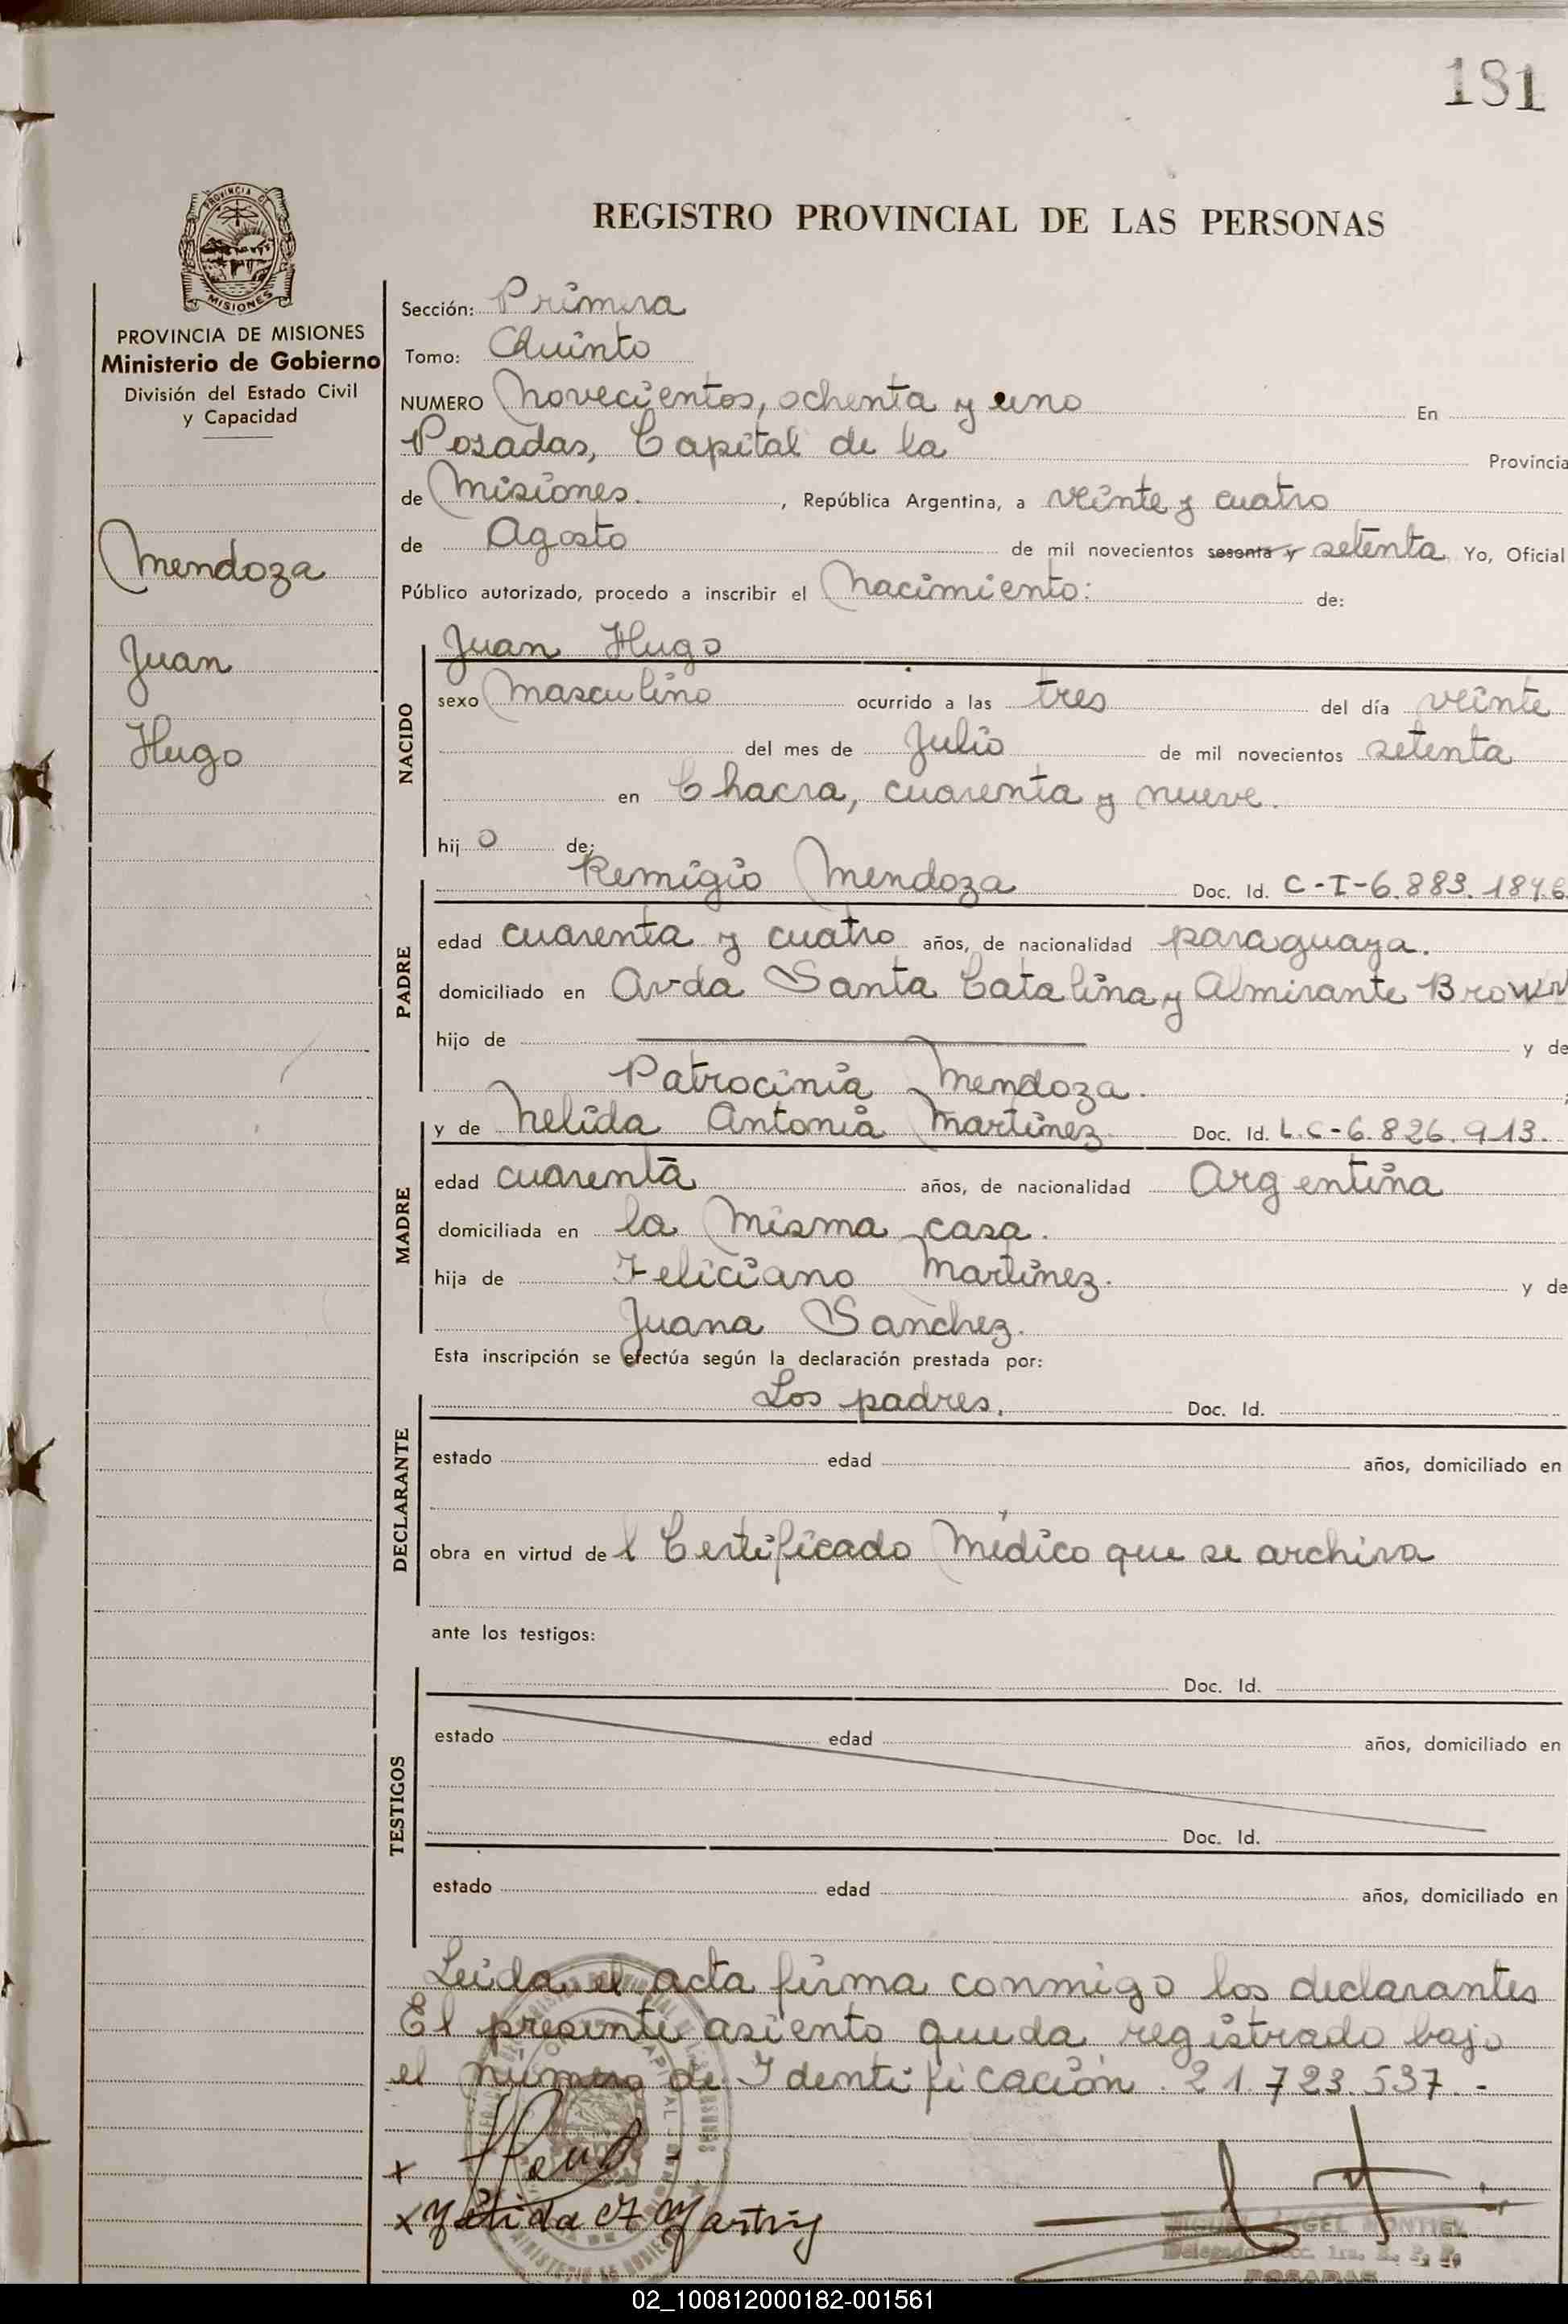 181
REGISTRO PROVINCIAL DE LAS PERSONAS
PROVINCIA DE MISIONES
Ministerio de Gobierno
División del Estado Civil
y Capacidad
Mendoza
Juan
Hugo
Sección: Primera
Tomo: Quinto
NUMERO Novecientos, ochenta y uno En
Posadas, Capital de la Provincia
de Misiones. , República Argentina, a veinte y cuatro
de Agosto de mil novecientos sesenta y setenta Yo, Oficial
Público autorizado, procedo a inscribir el Nacimiento: de:
NACIDO
Juan Hugo
sexo Masculino ocurrido a las tres del día veinte
del mes de Julio de mil novecientos setenta
en Chacra, cuarenta y nueve.
hijo de:
PADRE
Remigio Mendoza Doc. Id. C-I-6.883.189.6
edad cuarenta y cuatro años, de nacionalidad paraguaya.
domiciliado en Avda Santa Catalina y Almirante Brown
hijo de y de
Patrocinia Mendoza.
MADRE
y de Nelida Antonia Martinez Doc. Id. L.C-6.826.913.
edad cuarenta años, de nacionalidad Argentina
domiciliada en la Misma casa.
hija de Feliciano Martinez. y de
Juana Sanchez.
Esta inscripción se efectúa según la declaración prestada por:
DECLARANTE
Los padres. Doc. Id.
estado edad años, domiciliado en
obra en virtud del Certificado Médico que se archiva
ante los testigos:
TESTIGOS
Doc. Id.
estado edad años, domiciliado en
Doc. Id.
estado edad años, domiciliado en
Leida el acta firma conmigo los declarantes
El presente asiento queda registrado bajo
el número de Identificación. 21.723.537.-
x
x Nélida A Martinez
MIGUEL ANGEL MONTIEL
Delegado Secc. 1ra. R. P. P.
POSADAS
02_100812000182-001561